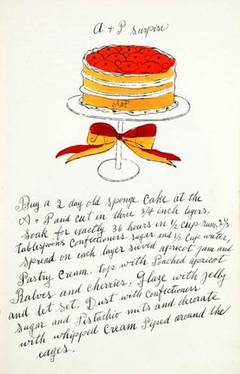 A + P Surprise
A+P
Buy a 2 day old sponge cake at the
A + P and cut in three 3/4 inch layers.
Soak for exactly 36 hours in 1/2 cup rum,
tablespoons Confectioners Sugar and 1/2 Cup water,
spread on each layer sieved apricot jam and
Pastry Cream. top with Poached apricot
Halves and cherries. Glaze with Jelly
and let Set. Dust with Confectioners
Sugar and Pistachio nuts and decorate
with whipped Cream Piped around the
eages.